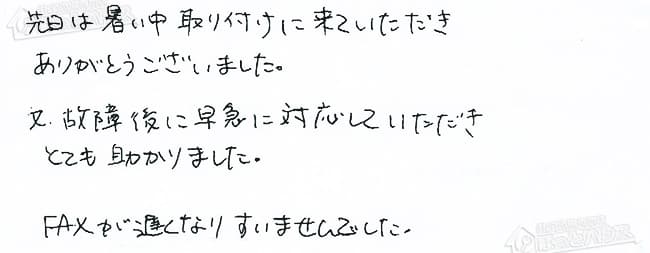 先日は暑い中取り付けに来ていただき
ありがとうございました。
又、故障後に早急に対応していただき
とても助かりました。
FAXが遅くなりすいませんでした。